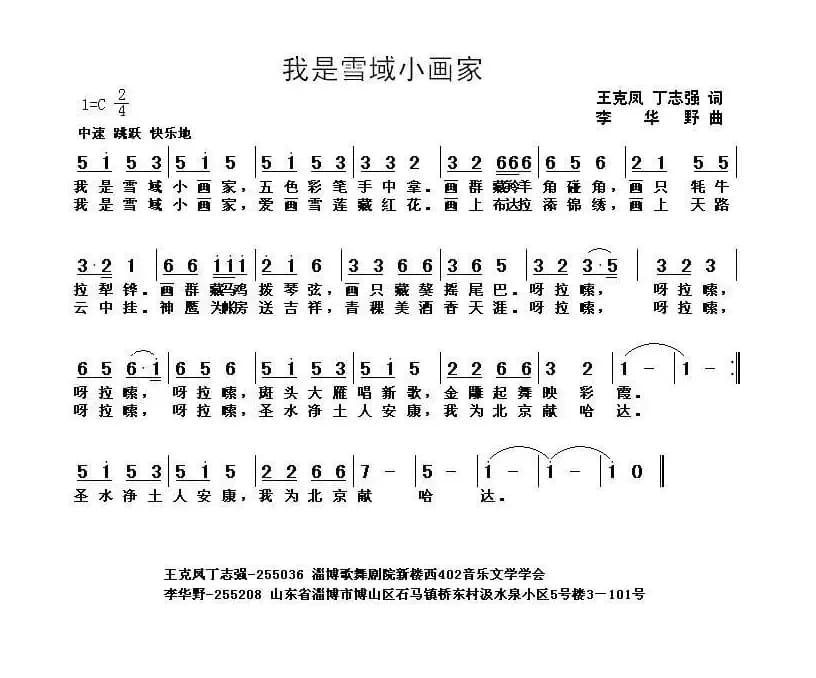 我是雪域小画家
1=C 2/4
王克凤 丁志强 词
李 华 野 曲
中速 跳跃 快乐地
5 1 5 3 | 5 1 5 | 5 1 5 3 | 3 3 2 | 3 2 666 | 6 5 6 | 2 1 5 5
我 是 雪 域 小 画 家，五 色 彩 笔 手 中 拿。画 群 藏羚羊 角 碰 角，画 只 牦 牛
我 是 雪 域 小 画 家，爱 画 雪 莲 藏 红 花。画 上 布达拉 添 锦 绣，画 上 天 路
3·2 1 | 6 6 111 | 2 1 6 | 3 3 6 6 | 3 6 5 | 3 2 3·5 | 3 2 3
拉 犁 铧。画 群 藏马鸡 拨 琴 弦，画 只 藏 獒 摇 尾 巴。呀 拉 嗦， 呀 拉 嗦，
云 中 挂。神 鹰 为帐房 送 吉 祥，青 稞 美 酒 香 天 涯。呀 拉 嗦， 呀 拉 嗦，
6 5 6·1 | 6 5 6 | 5 1 5 3 | 5 1 5 | 2 2 6 6 | 3 2 | 1 – | 1 – :||
呀 拉 嗦， 呀 拉 嗦，斑 头 大 雁 唱 新 歌，金 雕 起 舞 映 彩 霞。
呀 拉 嗦， 呀 拉 嗦，圣 水 净 土 人 安 康，我 为 北 京 献 哈 达。
5 1 5 3 | 5 1 5 | 2 2 6 6 | 7 – | 5 – | 1 – | 1 – | 1 0 ||
圣 水 净 土 人 安 康，我 为 北 京 献 哈 达。
王克凤丁志强-255036 淄博歌舞剧院新楼西402音乐文学学会
李华野-255208 山东省淄博市博山区石马镇桥东村汲水泉小区5号楼3—101号